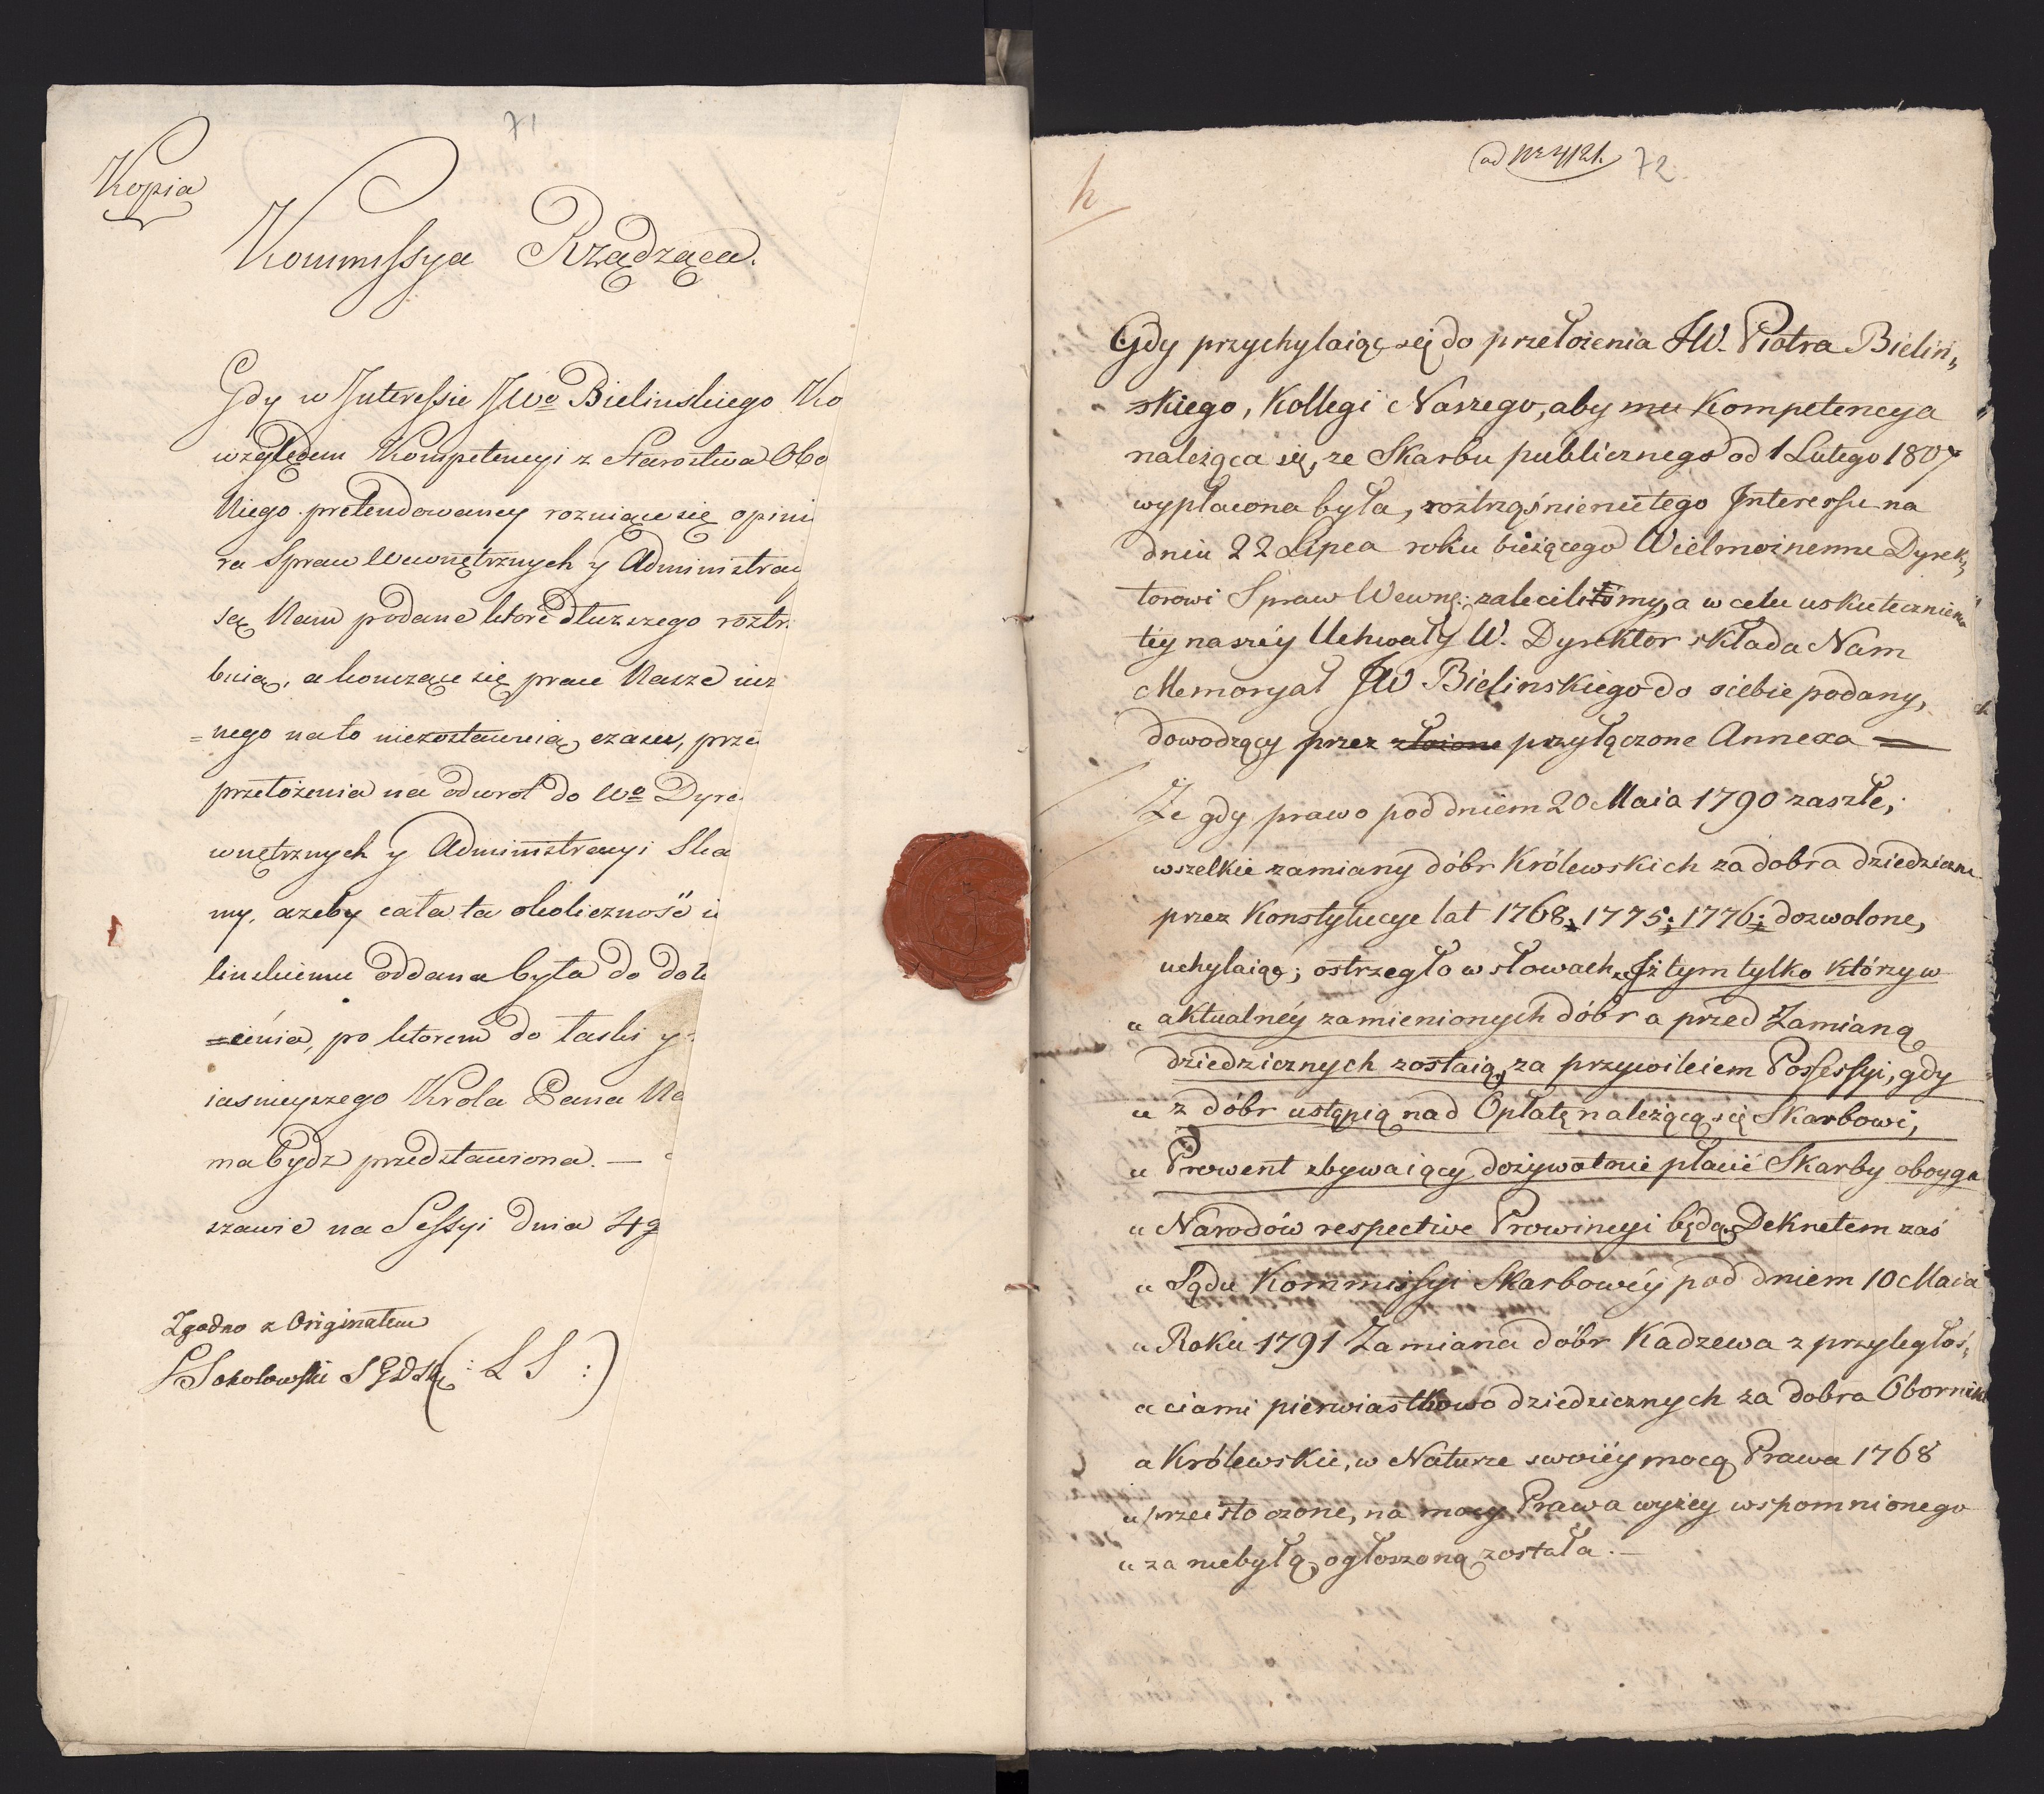 71
Kopia
Kommissya Rządząca.
Gdy w Interessie JWo Bielinskiego Ko
względem Kompetencyi z Starostwa Obo
Niego pretendowaney rozniące się opini
ra Spraw Wewnętrznych y Administrac
są Nam podane ktore dłuzszego roztr
bnią, a konczące się prace Nasze
=nego na to niezostawią czasu, prze
przełożenia na odwrot do Wo Dyre
wnętrznych y Administracyi Ska
my, azeby cała ta okoliczność
linskiemu oddana była do do
=enia, po ktorem do łaski y
iasnieyszego Krola Pana Na
ma bydz przedstawiona. —
szawie na Sessyi dnia 4g
Zgodno z Originałem
Sokołowski (: L S :)
ad Nr 4121. 72.
h
Gdy przychylaiąc się do przełożenia JW. Piotra Bieliń„
skiego, Kollegi Naszego, aby mu Kompetencya
należąca się, ze Skarbu publicznego od 1 Lutego 1807
wypłacona była, roztrząśnienie tego Interessu na
dniu 22 Lipca roku bieżącego Wielmożnemu Dyrek„
torowi Spraw Wewnę: zaleciliśmy, a w celu uskutecznienia
tey naszéy Uchwały W. Dyrektor składa Nam
Memoryał JW Bielinskiego do siebie podany,
dowodzący przez złożone przyłączone Annexa =
Że gdy prawo pod dniem 20 Maia 1790 zaszłe,
wszelkie zamiany dóbr Królewskich za dobra dziedziczne
przez Konstytucye lat 1768; 1775; 1776; dozwolone,
uchylaiąc; ostrzegło w słowach „Iż tym tylko którzy w
„ aktualnéy zamienionych dóbr a przed Zamianą
dziedzicznych zostaią, za przywileiem Possessyi, gdy
„ z dóbr ustąpią nad Opłatę należącą się Skarbowi,
„ Prowent zbywaiący dożywotnie płacić Skarby oboyga
„ Narodów respective Prowincyi będą, Dekretem zaś
„ Sądu Kommissyi Skarbowéy pod dniem 10 Maia
„ Roku 1791 Zamiana dóbr Kadzewa z przyległoś„
„ ciami pierwiastkowo dziedzicznych za dobra Obornik
„ Królewskie, w Naturze swoiéy mocą Prawa 1768
„ przeistoczone, na mocy Prawa wyżey wspomnionego
„ za niebyłą ogłoszoną została. —